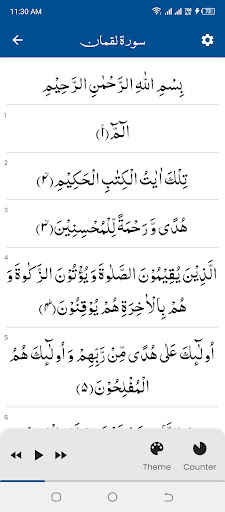 11:30 AM
سورة لقمان
بِسْمِ اللهِ الرَّحْمٰنِ الرَّحِيْمِ
1
الٓمّٓ (۱)
2
تِلْكَ اٰيٰتُ الْكِتٰبِ الْحَكِيْمِ (۲)
3
هُدًى وَّ رَحْمَةً لِّلْمُحْسِنِيْنَ (۳)
4
الَّذِيْنَ يُقِيْمُوْنَ الصَّلٰوةَ وَ يُؤْتُوْنَ الزَّكٰوةَ وَ
هُمْ بِالْاٰخِرَةِ هُمْ يُوْقِنُوْنَ (۴)
5
اُولٰٓىٕكَ عَلٰى هُدًى مِّنْ رَّبِّهِمْ وَ اُولٰٓىٕكَ هُمُ
الْمُفْلِحُوْنَ (۵)
6
Theme
Counter